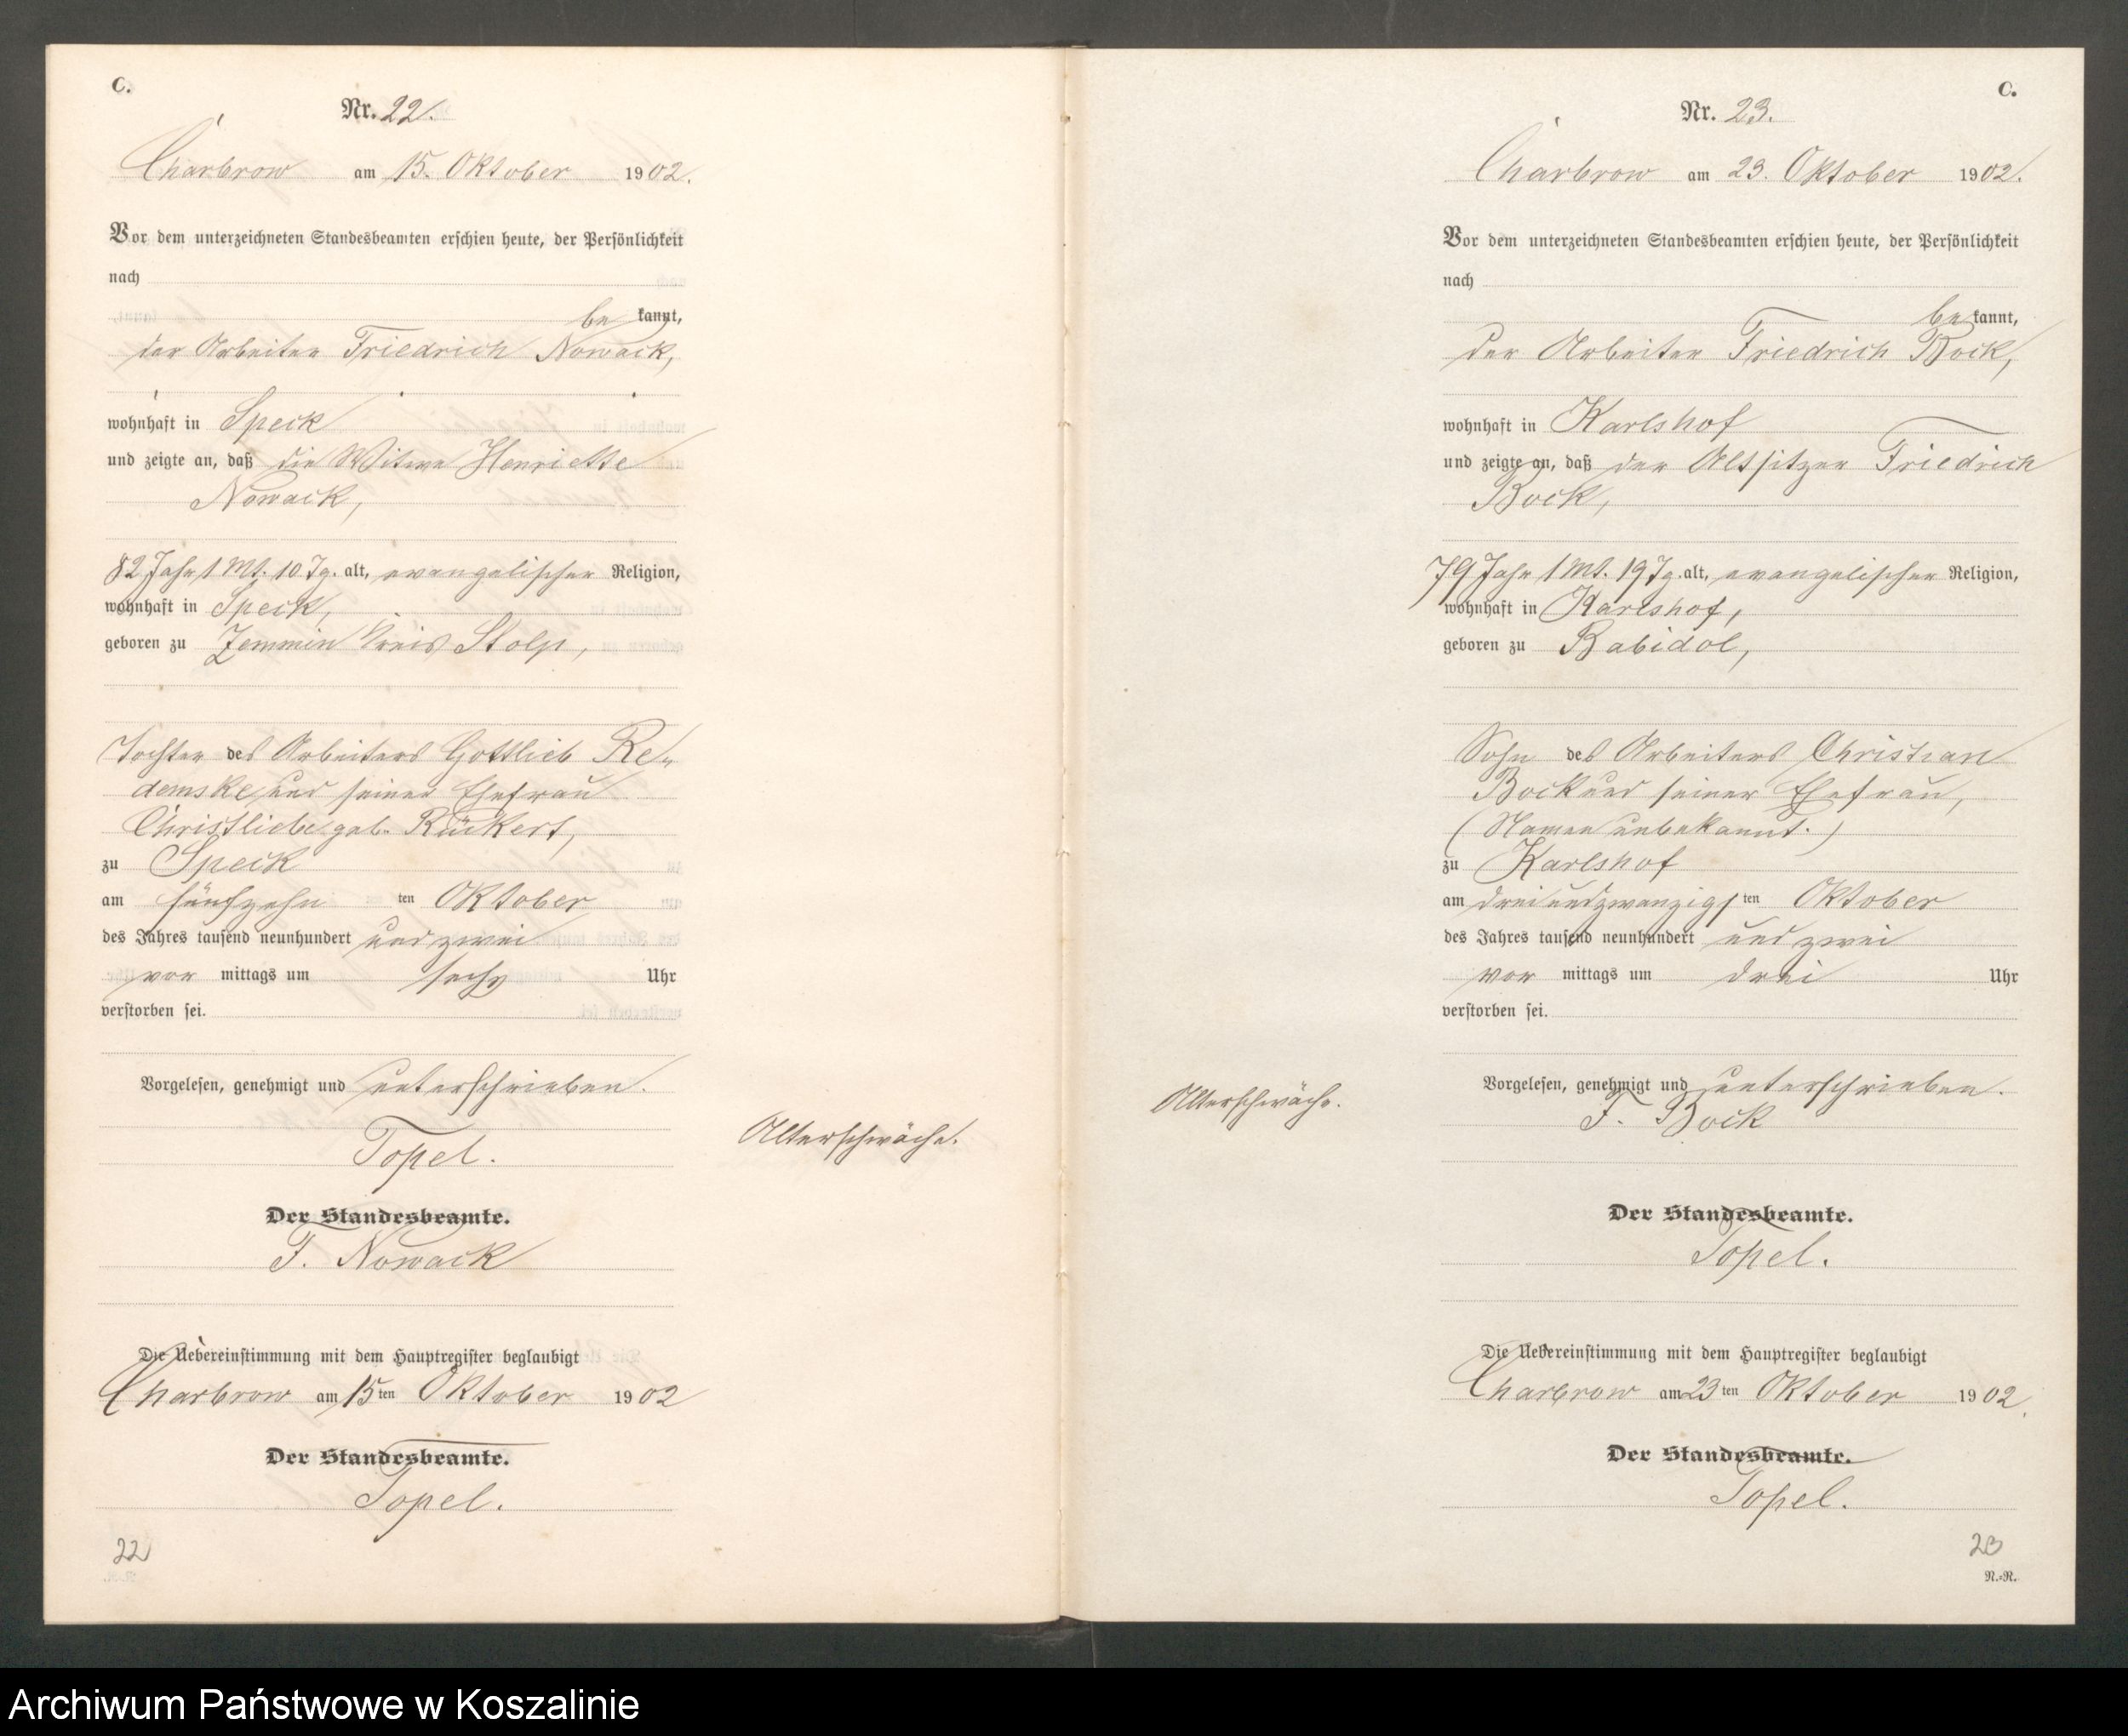 C.
Nr. 22.
Charbrow am 15. Oktober 1902.
Vor dem unterzeichneten Standesbeamten erschien heute, der Persönlichkeit
nach
be kannt,
der Arbeiter Friedrich Nowack,
wohnhaft in Speck
und zeigte an, daß die Witwe Henriette
Nowack,
82 Jahr 1 Mt. 10 Tg. alt, evangelischer Religion,
wohnhaft in Speck,
geboren zu Zemmin Kreis Stolp,
Tochter des Arbeiters Gottlieb Re-
demske und seiner Ehefrau
Christliebe geb. Rückert,
zu Speck
am fünfzehn ten Oktober
des Jahres tausend neunhundert und zwei
vor mittags um sechs Uhr
verstorben sei.
Vorgelesen, genehmigt und unterschrieben.
Topel.
Alterschwäche.
Der Standesbeamte.
F. Nowack
Die Uebereinstimmung mit dem Hauptregister beglaubigt
Charbrow am 15 ten Oktober 1902
Der Standesbeamte.
Topel.
22
C.
Nr. 23.
Charbrow am 23. Oktober 1902.
Vor dem unterzeichneten Standesbeamten erschien heute, der Persönlichkeit
nach
be kannt,
der Arbeiter Friedrich Bock,
wohnhaft in Karlshof
und zeigte an, daß der Altsitzer Friedrich
Bock,
79 Jahr 1 Mt. 19 Tg. alt, evangelischer Religion,
wohnhaft in Karlshof,
geboren zu Babidol,
Sohn des Arbeiters Christian
Bock und seiner Ehefrau,
(Namen unbekannt.)
zu Karlshof
am dreiundzwanzigs ten Oktober
des Jahres tausend neunhundert und zwei
vor mittags um drei Uhr
verstorben sei.
Vorgelesen, genehmigt und unterschrieben.
Alterschwäche.
F. Bock
Der Standesbeamte.
Topel.
Die Uebereinstimmung mit dem Hauptregister beglaubigt
Charbrow am 23 ten Oktober 1902.
Der Standesbeamte.
Topel.
23
N.=N.
Archiwum Państwowe w Koszalinie